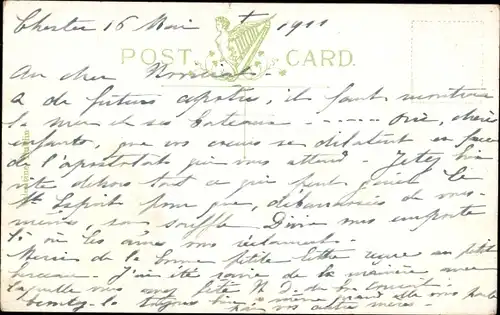 Chester 16 Mai 1911
POST CARD.
Au cher Noviciat.
à de futurs apôtres, il faut montrer
la mer et ses bateaux - - - - - - Oui, chères
enfants, que vos coeurs se dilatent en face
de l'apostolat qui vous attend. Jetez bien
vite dehors tout ce qui peut le
St Esprit pour que, débarrassées de vous-
mêmes, son souffle Divin vous emporte
là où les âmes vous réclament.
Merci de la bonne petite lettre reçue au petit
berceau. J'ai été ravie de la manière avec
laquelle vous avez fêté N. D. du bon Conseil.
toujours bien, même quand elle vous parle
par vos autres mères.